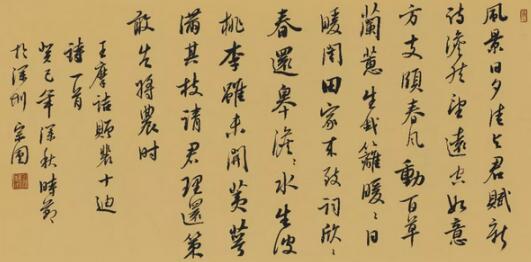 風景日夕佳与君賦新
詩澹然望遠空如意
方支頤春風動百草
蘭蕙生我籬暖〻日
暖閨田家来致詞欣〻
春還皋澹〻水生波
桃李雖未開荑萼
滿其枝請君理還策
敢告將農時
王摩詰贈裴十迪
詩一首
癸巳年深秋時節
於